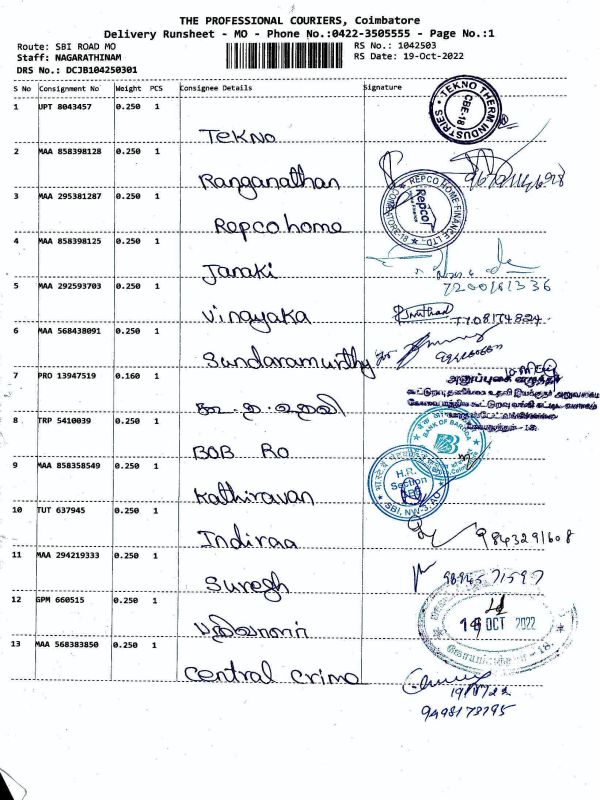 THE PROFESSIONAL COURIERS, Coimbatore
Delivery Runsheet - MO - Phone No.:0422-3505555 - Page No.:1
Route: SBI ROAD MO
RS No.: 1042503
Staff: NAGARATHINAM
RS Date: 19-Oct-2022
DRS No.: DCJB104250301
S No Consignment No Weight PCS Consignee Details Signature
1 UPT 8043457 0.250 1
TEKNO THERM INDUSTRIES CBE-18
Tekno
2 MAA 858398128 0.250 1
Ranganathan
3 MAA 295381287 0.250 1
REPCO HOME FINANCE LTD., COIMBATORE-18 Repco
Repco home
4 MAA 858398125 0.250 1
Janaki
5 MAA 292593703 0.250 1
7200181336
Vinayaka
6 MAA 568438091 0.250 1
Sundaramurthy
7 PRO 13947519 0.160 1
8 TRP 5410039 0.250 1
BANK OF BARODA
BOB RO
9 MAA 858358549 0.250 1
H.R. Section
SBI, NW-3, AO
Kathiravan
10 TUT 637945 0.250 1
Indiraa
9843291608
11 MAA 294219333 0.250 1
Suregh
12 GPM 660515 0.250 1
OCT 2022
பதிவாளர்
13 MAA 568383850 0.250 1
Central crime
9498173795